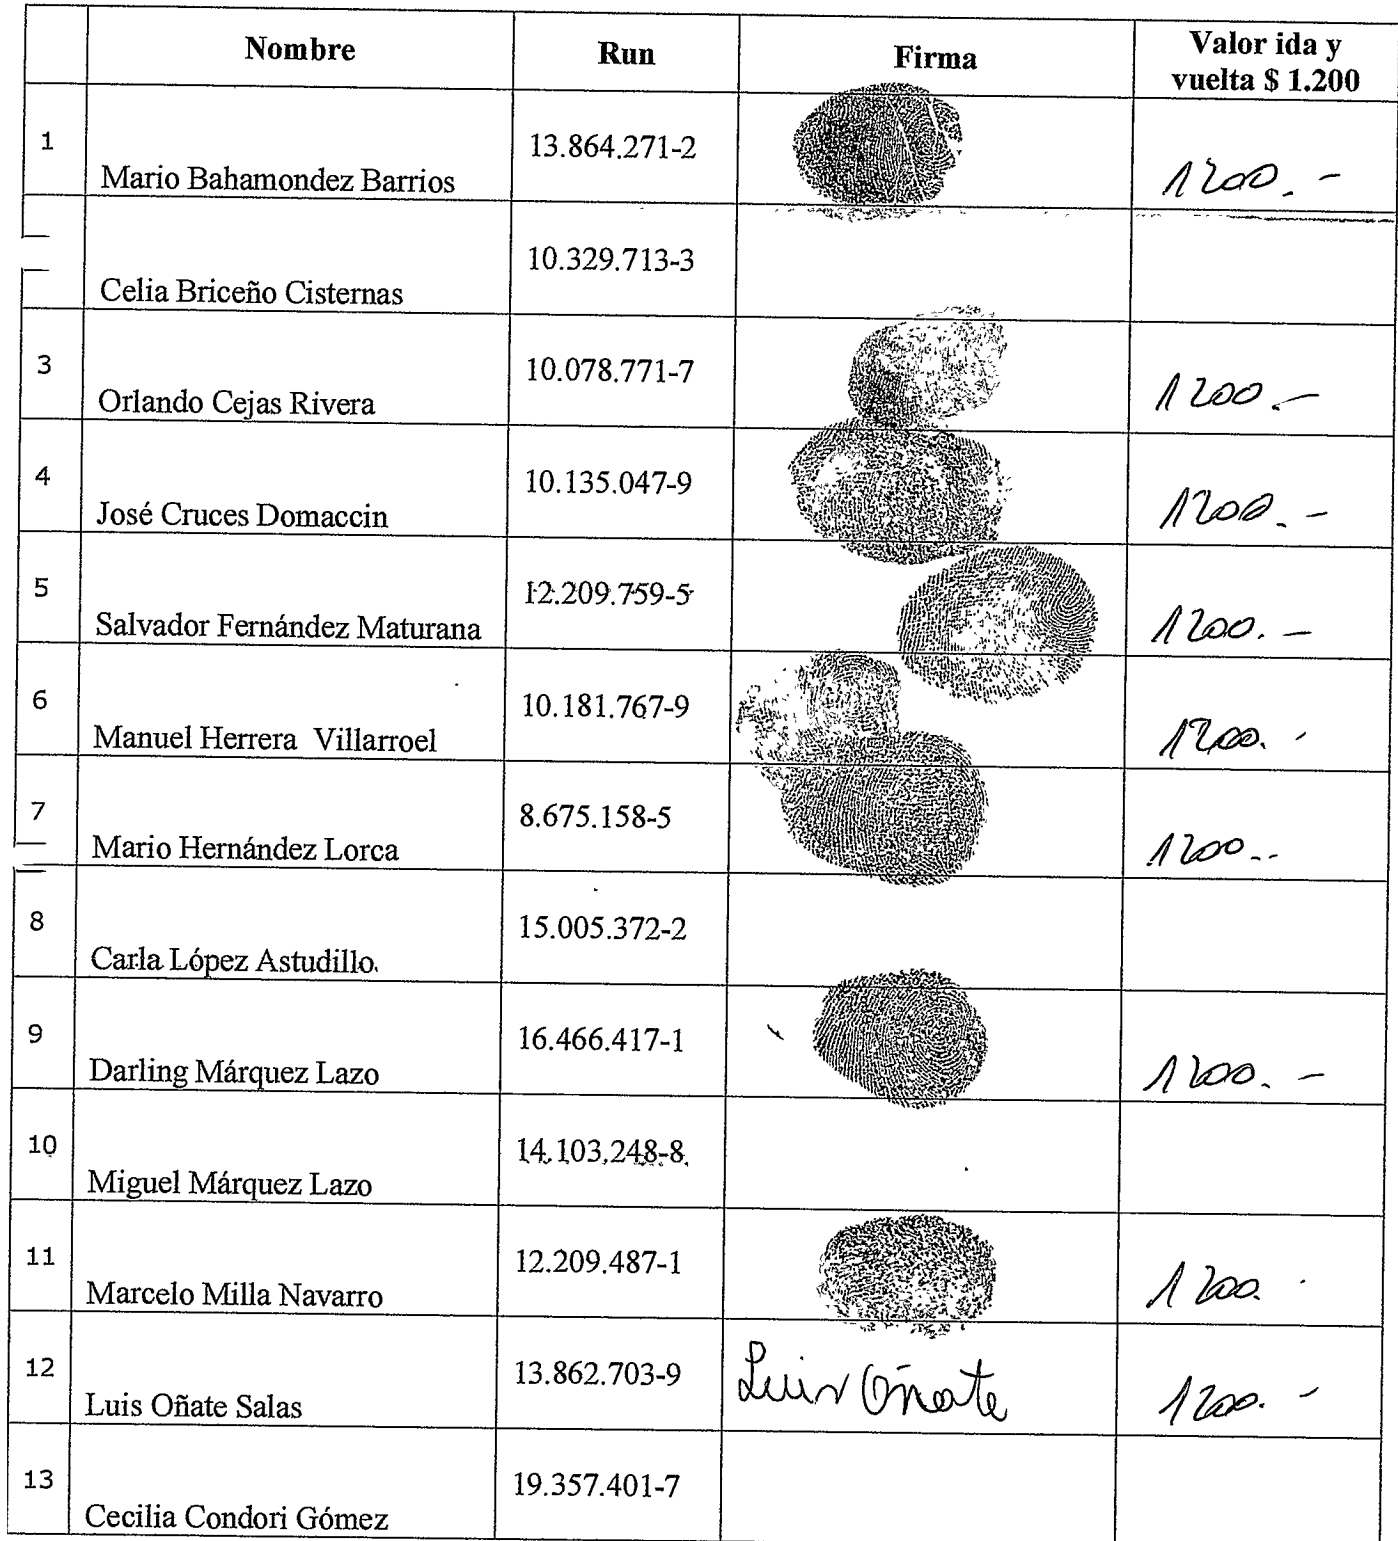 Nombre Run Firma Valor ida y
vuelta $ 1.200
1 Mario Bahamondez Barrios 13.864.271-2 1200.-
Celia Briceño Cisternas 10.329.713-3
3 Orlando Cejas Rivera 10.078.771-7 1200.-
4 José Cruces Domaccin 10.135.047-9 1200.-
5 Salvador Fernández Maturana 12.209.759-5 1200.-
6 Manuel Herrera Villarroel 10.181.767-9 1200.-
7 Mario Hernández Lorca 8.675.158-5 1200.-
8 Carla López Astudillo 15.005.372-2
9 Darling Márquez Lazo 16.466.417-1 1200.-
10 Miguel Márquez Lazo 14.103.248-8
11 Marcelo Milla Navarro 12.209.487-1 1200.
12 Luis Oñate Salas 13.862.703-9 Luis Oñate 1200.-
13 Cecilia Condori Gómez 19.357.401-7